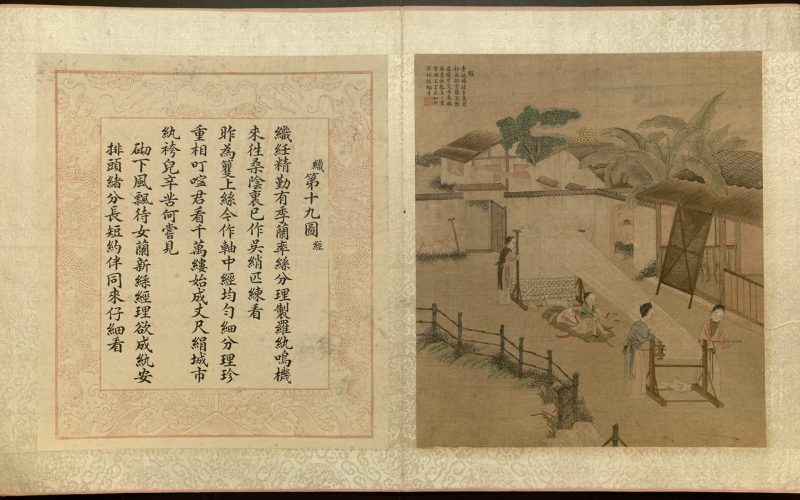 織第十九圖經
織紝精勤有季蘭率絲分理製羅紈鳴機
來往桑陰裏已作吳綃匹練看
昨為籰上絲今作軸中經均勻細分理珍
重相叮嚀君看千萬縷始成丈尺絹城市
紈袴兒辛苦何嘗見
砌下風飄待女蘭新絲經理欲成紈安
排頭緒分長短約伴同來仔細看